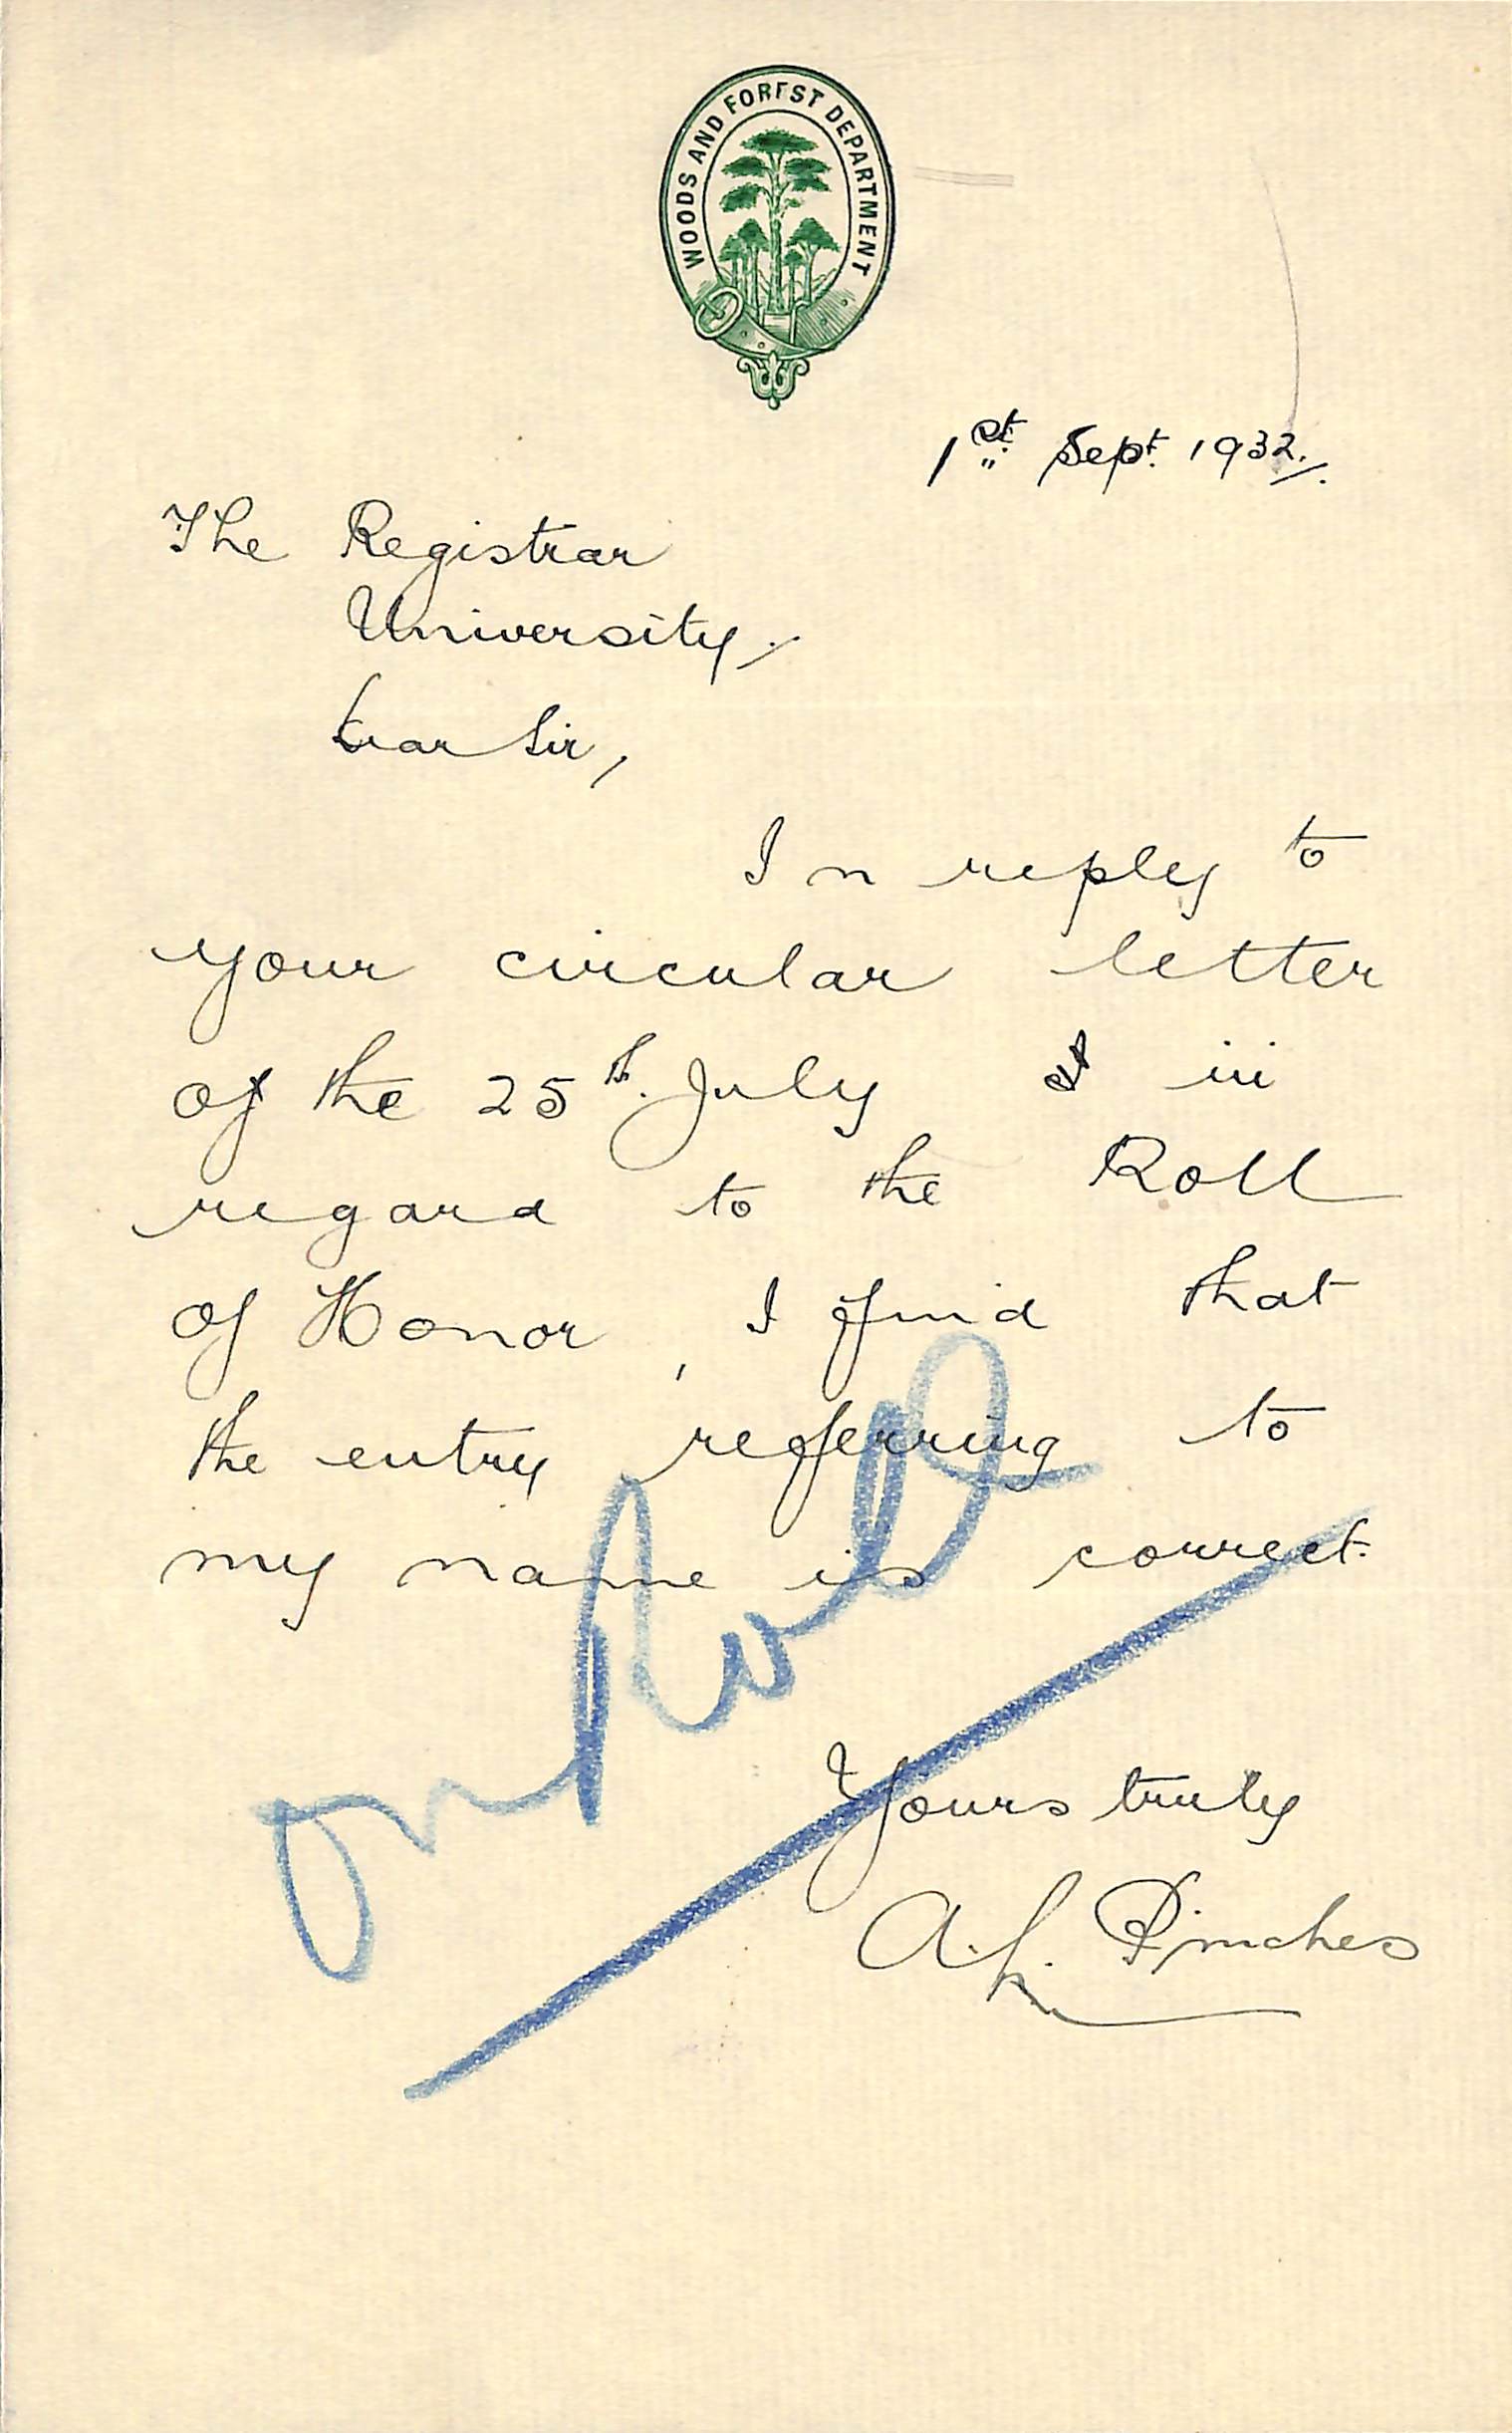 WOODS AND FOREST DEPARTMENT
1st Sept. 1932.
The Registrar
University.
Dear Sir,
In reply to
your circular letter
of the 25th July in
regard to the Roll
of Honor, I find that
the entry referring to
my name is correct.
on Roll
Yours truly
A. L. Pinches